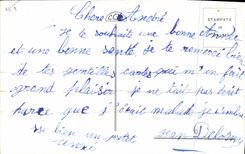 Chere André
Je te souhaite une bonne année
et une bonne santé Je te remerci bien
de tes gentilles cartes qui m'on fait
grand plaisir je ne t'ait pas écrit
parce que j'était malade je t'embrasse
bien un petit
ami
Jean
STAMPATE